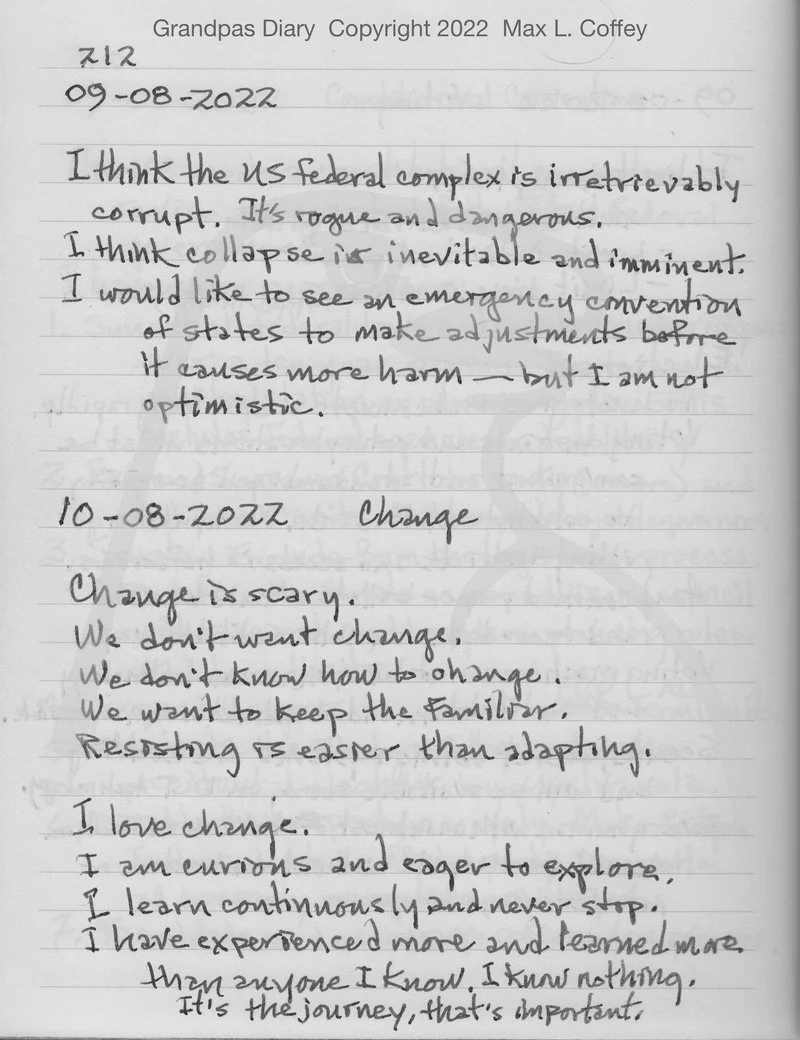 Grandpas Diary Copyright 2022 Max L. Coffey
212
09-08-2022
I think the US federal complex is irretrievably
corrupt. It's rogue and dangerous.
I think collapse is inevitable and imminent.
I would like to see an emergency convention
of states to make adjustments before
it causes more harm — but I am not
optimistic.
10-08-2022 Change
Change is scary.
We don't want change.
We don't know how to change.
We want to keep the familiar.
Resisting is easier than adapting.
I love change.
I am curious and eager to explore.
I learn continuously and never stop.
I have experienced more and learned more
than anyone I know. I know nothing.
It's the journey, that's important.